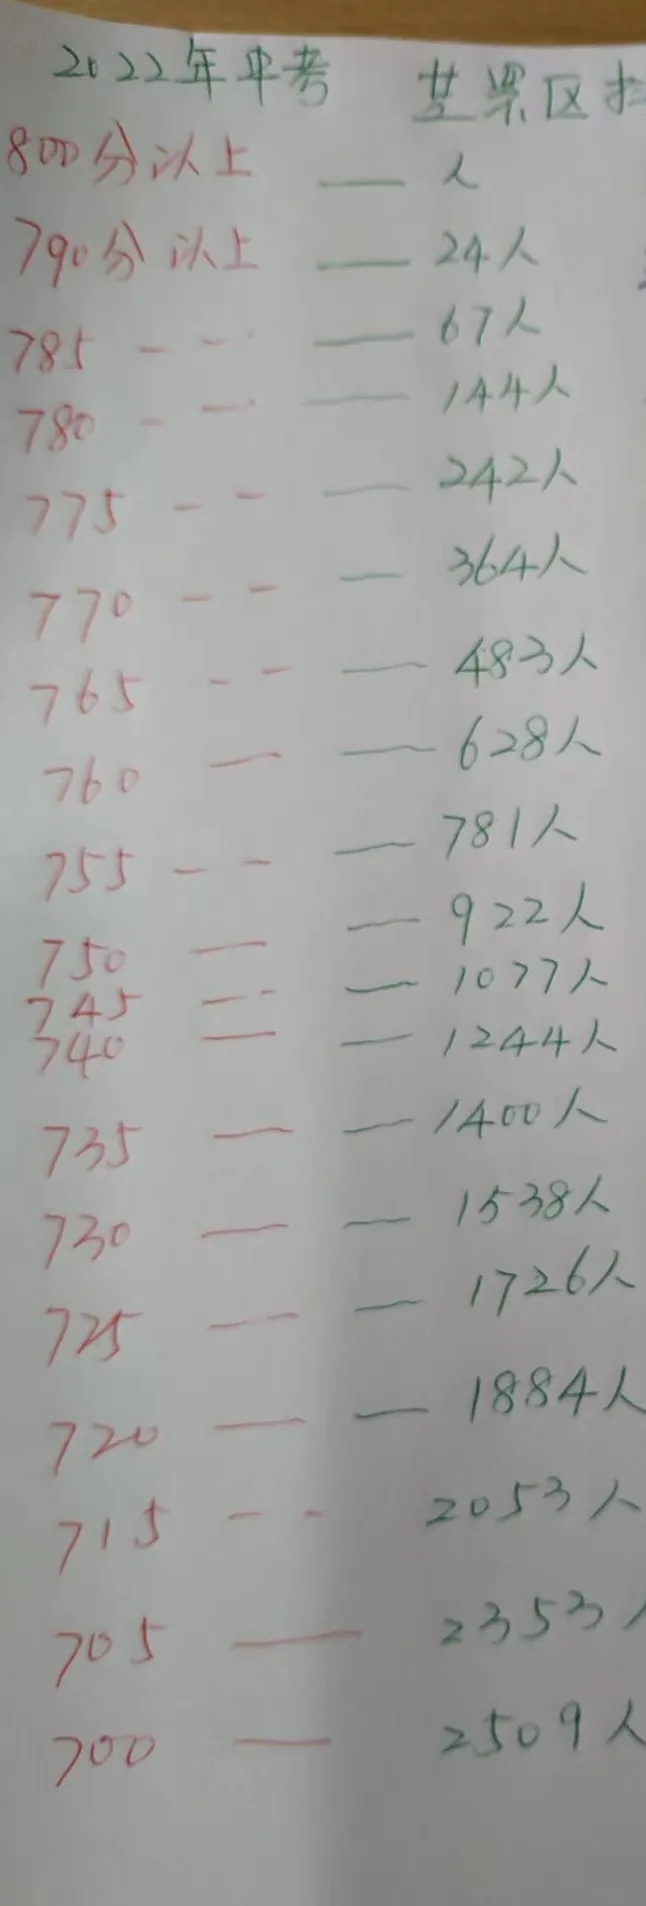 2022年中考 芝罘区
800分以上 —— 人
790分以上 —— 24人
785 - - - —— 67人
780 - - - —— 144人
775 - - —— 242人
770 - - — 364人
765 - - —— 483人
760 — —— 628人
755 - - —— 781人
750 — — 922人
745 - - — 1077人
740 — — 1244人
735 — — 1400人
730 — — 1538人
725 - - — 1726人
720 — — 1884人
715 - - 2053人
705 —— 2353人
700 — 2509人